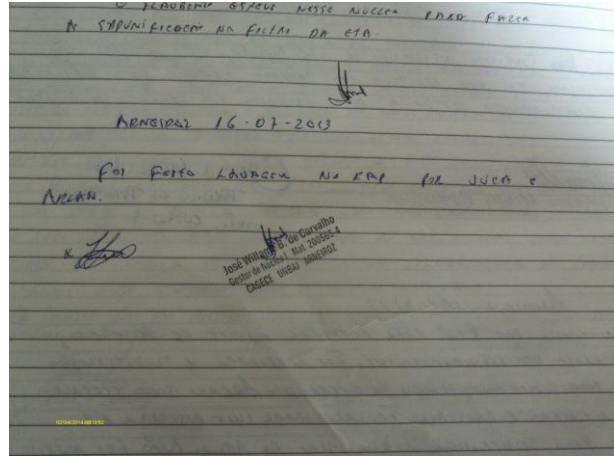 O FLAUBENIO ESTEVE NESSE NUCLEO PARA FAZER
A SAPUNIFICACÃO NA FILTRO DA ETA.
ARNEIROZ 16-07-2013
FOI FEITO LAVAGEM NO RAP POR JUCA E
ARLAN.
José Willame B. de Carvalho
Gestor de Núcleo I Mat. 200565-4
CAGECE UNBAJ ARNEIROZ